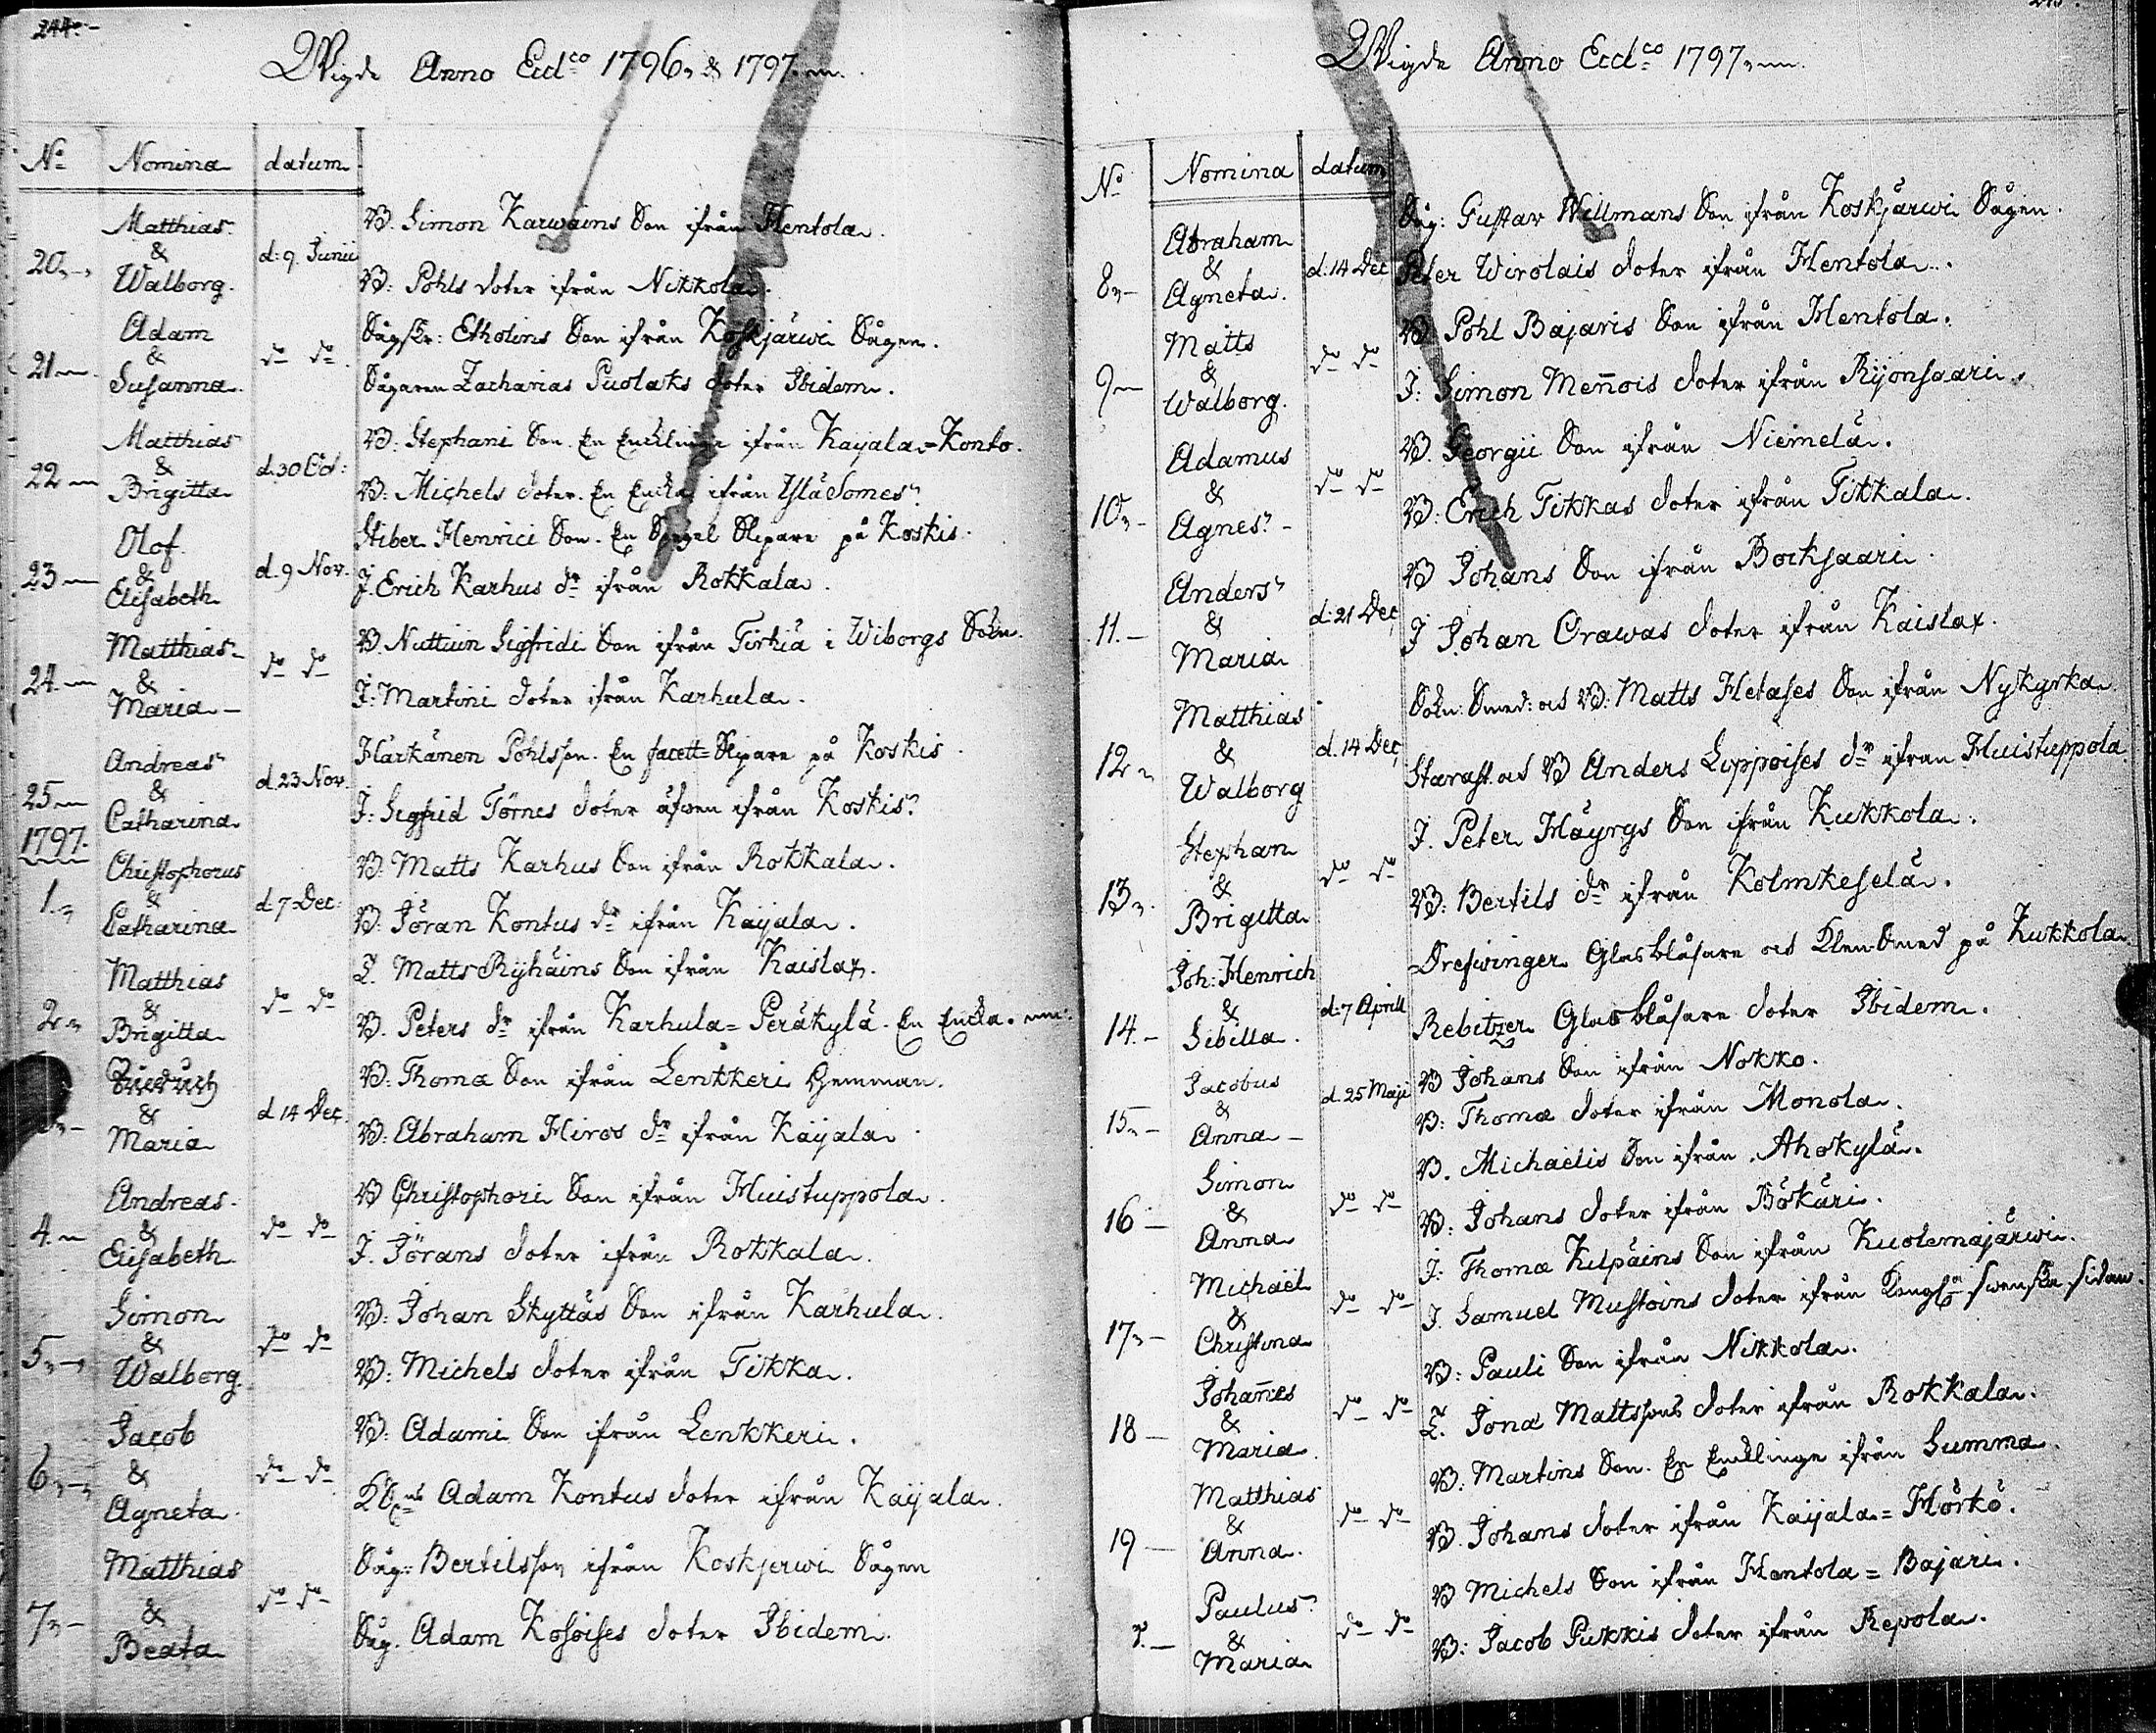 244.
Wigde Anno Eccl.co 1796 & 1797.
No Nomina datum
Matthias
&
Walborg.
20. d: 9. Junii
B. Simon Karwains Son ifrån Hentola.
B: Pohls doter ifrån Nikkola.
Adam
&
Susanna.
21. do do
Sågskr: Etholins Son ifrån Koskjärwi Sågen.
Sågaren Zacharias Puolaks doter Ibidem.
Matthias
&
Brigitta
22 d. 30 Oct:
B: Stephani Son. En Enklinge ifrån Kayala=Konto.
B: Michels doter. En Encka ifrån YläSomes.
Olof.
&
Elisabeth
23 d. 9 Nov.
Stiber Henrici Son. En Spegel Slipare på Koskis.
J. Erich Karhus dr ifrån Rokkala.
Matthias
&
Maria
24. do do
B. Nuttiun Sigfridi Son ifrån Tirkiä i Wiborgs Sokn.
J: Martini doter ifrån Karhula.
Andreas
&
Catharina
25 d. 23 Nov.
Harkänen Pohlsson. En facett=Slipare på Koskis.
J: Sigfrid Törnes doter äfwen ifrån Koskis.
1797.
Christophorus
&
Catharina
1. d. 7 Dec:
B: Matts Karhus Son ifrån Rokkala.
B: Jöran Kontus dr ifrån Kayala.
Matthias
&
Brigitta
2. do do
L. Matts Ryhäins Son ifrån Kaislax.
B. Peters dr ifrån Karhula=Peräkylä. En Encka.
&
Maria
d 14 Dec.
B: Thomæ Son ifrån Lenkkeri Hemman.
B: Abraham Hiros dr ifrån Kayala.
Andreas.
&
Elisabeth
4. do do
B Christophori Son ifrån Huistuppola.
J. Jörans doter ifrån Rokkala.
Simon
&
Walborg.
5. do do
B: Johan Skyttäs Son ifrån Karhula.
B: Michels doter ifrån Tikka.
Jacob
&
Agneta.
6. do do
B: Adami Son ifrån Lenkkeri.
Adam Kontus doter ifrån Kayala.
Matthias
&
Beata
7. do do
Såg: Bertilsson ifrån Koskjerwi Sågen
Såg. Adam Kosoises doter Ibidem.
Wigde Anno Eccl.co 1797.
No Nomina datum
Abraham
&
Agneta.
8. d. 14 Dec
Såg: Gustav Willmans Son ifrån Koskjärwi Sågen.
Peter Wirolais doter ifrån Hentola.
Matts
&
Walborg.
9 do do
B Pohl Bajaris Son ifrån Hentola.
J: Simon Mennois doter ifrån Ryonsaari.
Adamus
&
Agnes.
10. do do
B. Georgii Son ifrån Niemelä.
B: Erich Tikkas doter ifrån Tikkala.
Anders
&
Maria
11. d: 21 Dec
B Johans Son ifrån Borksaari
J Johan Orawas doter ifrån Kaislax.
Matthias
&
Walborg
12. d. 14 Dec
Sokn: Smed: B: Matts Hetases Son ifrån Nykyrka.
Starast. B Anders Loppoises dr ifrån Huistuppola.
Stephan
&
Brigitta
13. do do
J. Peter Häyrys Son ifrån Kukkola.
B: Bertils dr ifrån Kolmkeselä.
Joh: Henrich
&
Sibilla.
14. d. 7 Aprill
Dreswinger Glasblåsare Klen Smed på Kukkola.
Rebitzer Glasblåsare doter Ibidem.
Jacobus
&
Anna
15. d. 25 Maji
B Johans Son ifrån Nokko.
B: Thomæ doter ifrån Monola.
Simon
&
Anna
16 do do
B. Michaelis Son ifrån Ahokylä.
B: Johans doter ifrån Bökäri.
Michaël
&
Christina
17. do do
J: Thomæ Kilpäins Son ifrån Kuolemajärwi.
J. Samuel Mustoins doter ifrån swenska sidan.
Johannes
&
Maria
18 do do
B: Pauli Son ifrån Nikkola.
L. Jonæ Mattssons doter ifrån Rokkala.
Matthias
&
Anna.
19 do do
B: Martins Son. En Encklinge ifrån Summa.
B. Johans doter ifrån Kayala=Hörkö.
Paulus
&
Maria
do do
B Michels Son ifrån Hentola=Bajari.
B: Jacob Pukkis doter ifrån Repola.